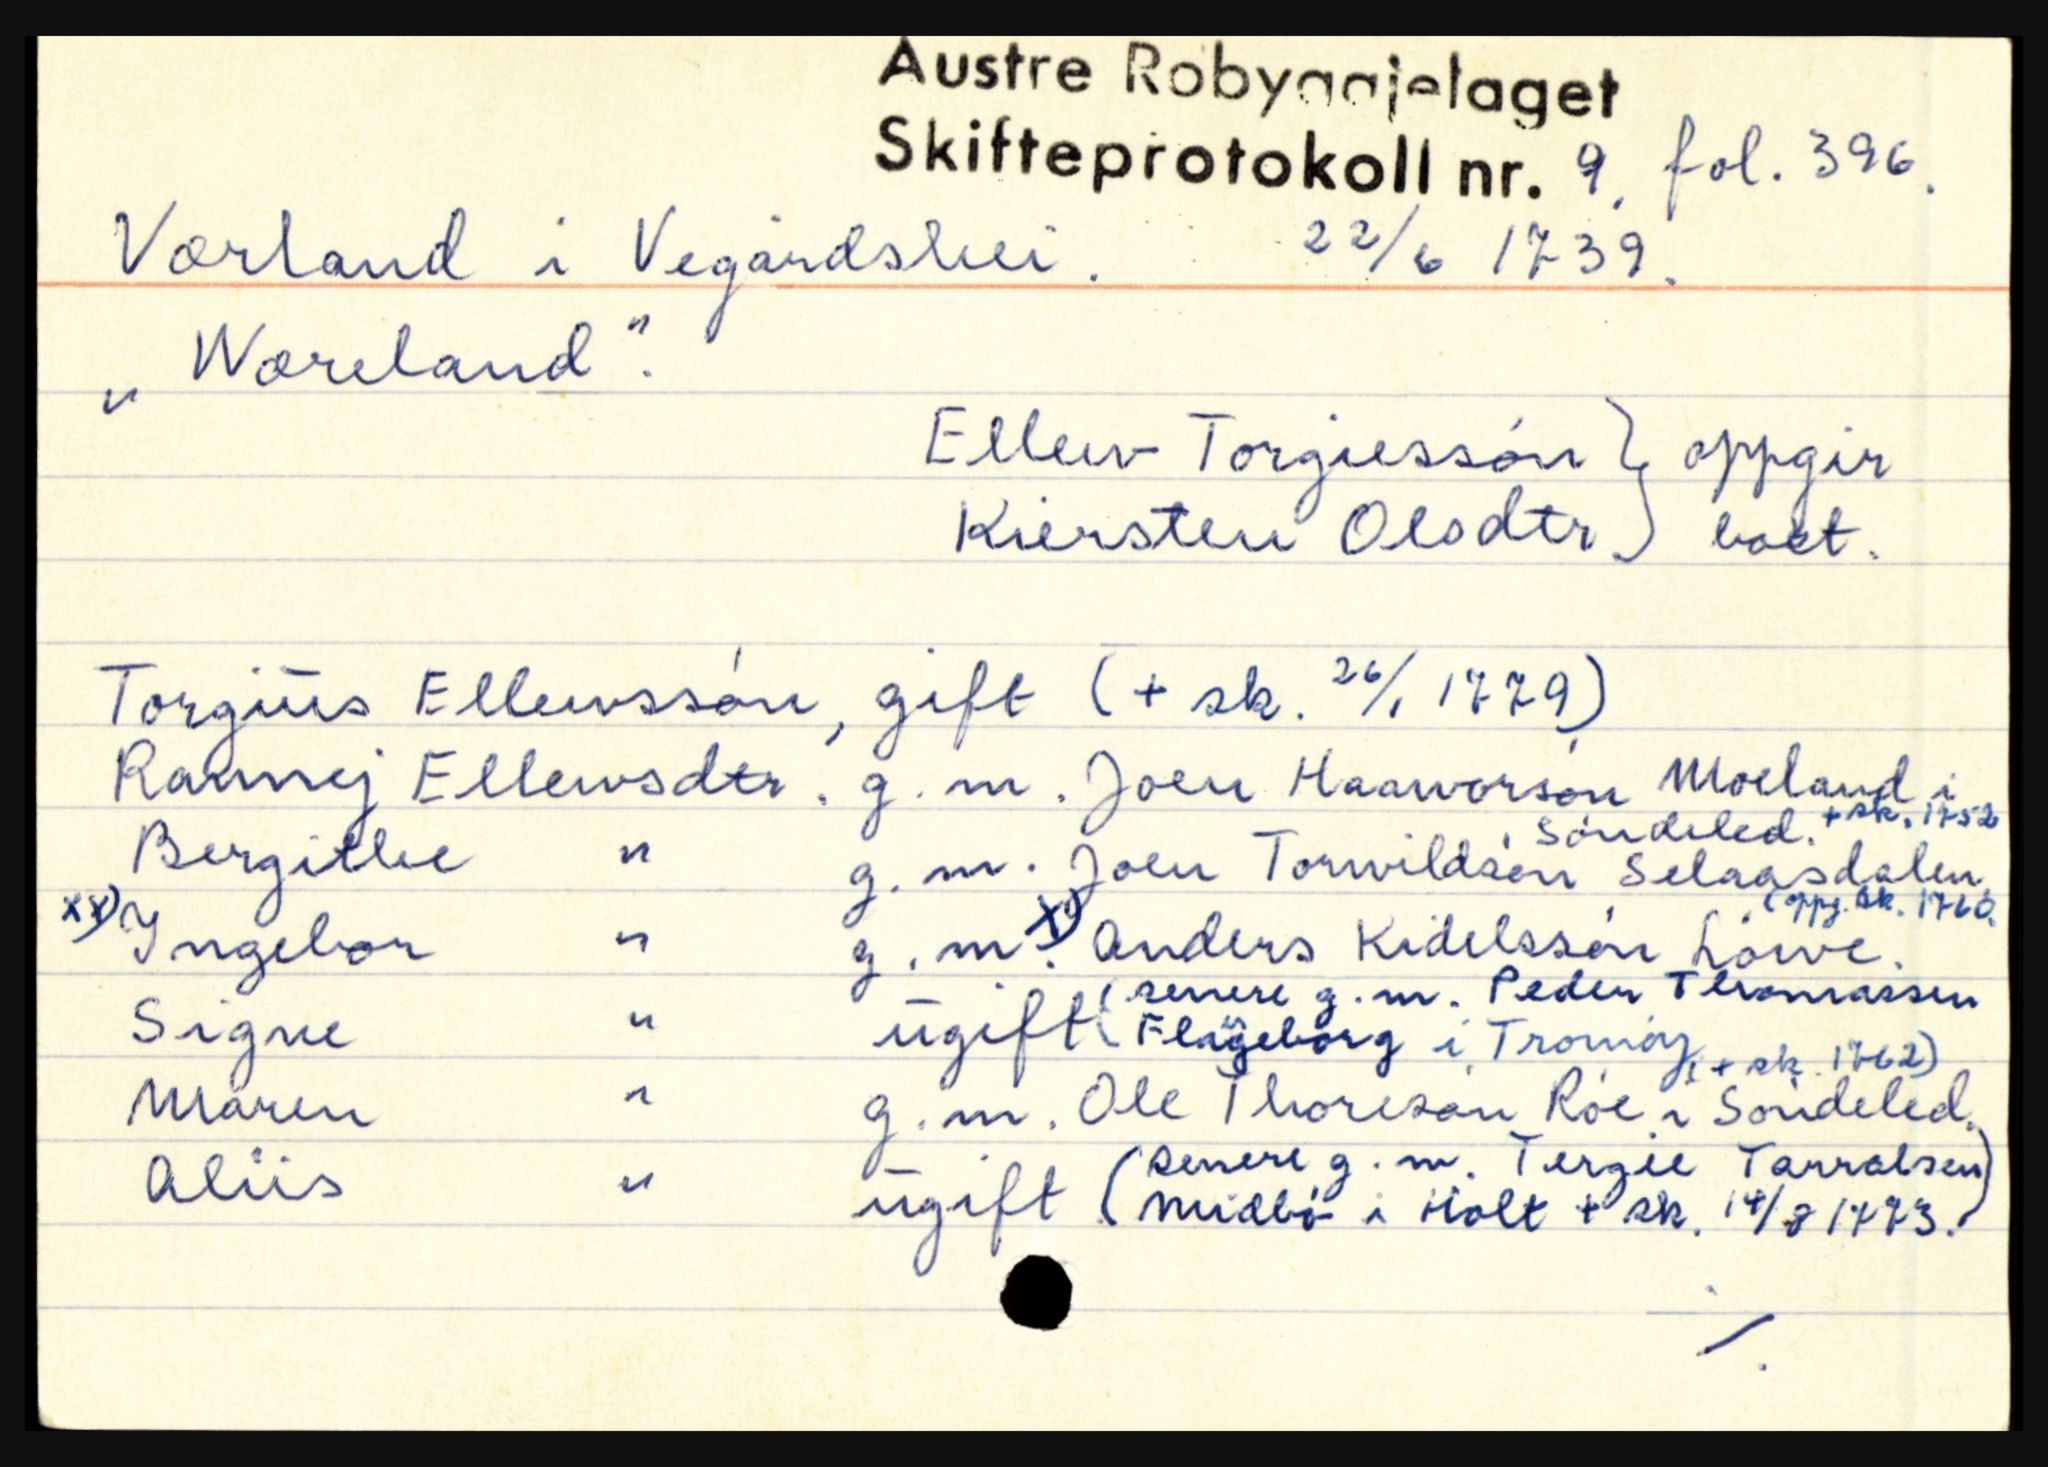 Austre Robyggjelaget
Skifteprotokoll nr. 9, fol. 396.
Værland i Vegårdshei. 22/6 1739.
„Wæreland".
Ellew Torgiessón } oppgir
Kiersten Olsdtr } boet.
Torgiüs Ellewssón, gift (+ sk. 26/1 1779)
Rannej Ellewsdtr. g.m. Joen Haaworsón Moeland i
Sóndeled. + sk. 1752
Bergithe " g.m. Joen Torwildsón Selaasdalen
(oppg. sk. 1760.
xx) Ingebor " g.m. x) Anders Kidelssón Lówe.
Signe " ügift (senere g.m. Peder Thomassen
Flageborg i Tromóy, + sk. 1762)
Maren " g.m. Ole Thoresón Róe i Sóndeled.
Aliis " ügift (senere g.m. Tergie Tarralsen
Midbó i Holt + sk. 14/8 1773.)
./.